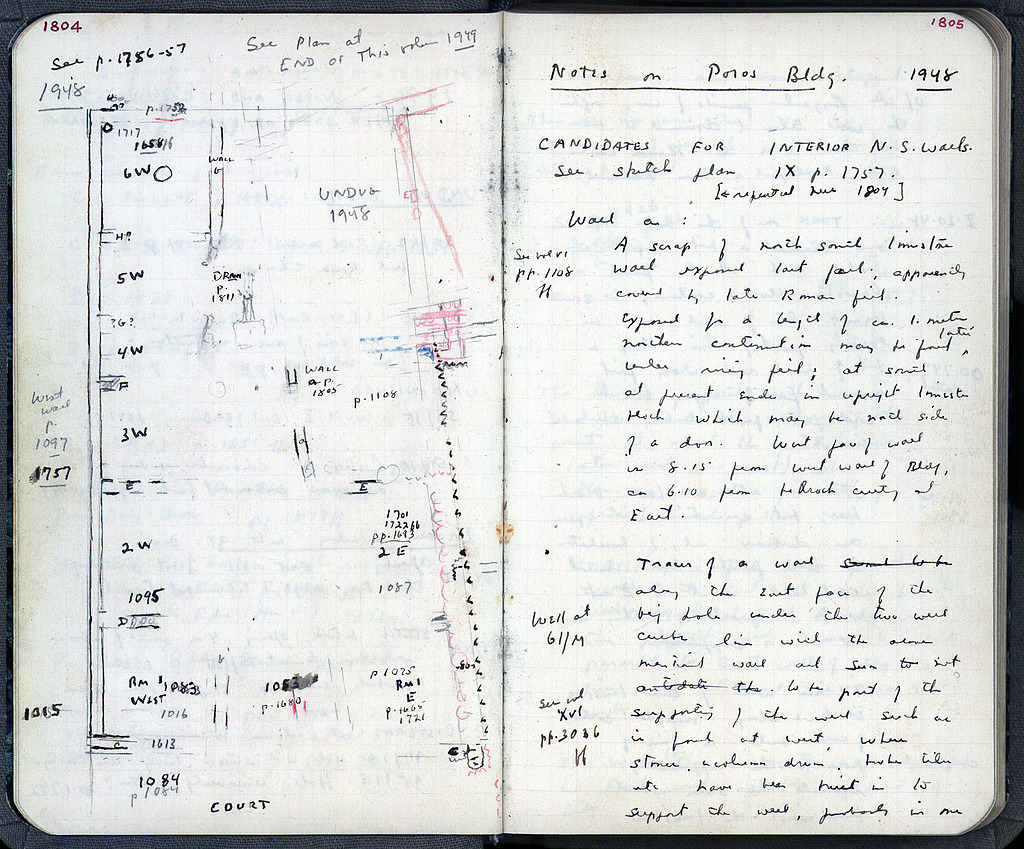 1804
See p. 1756-57
1948
See Plan at
END of This volume 1949
p. 1752
1717
6W
WALL
UNDUG
1948
H?
5W
DRAIN
p.
1811
?G?
4W
F
WALL
a p.
1805
p. 1108
West
wall
p.
1097
1757
3W
a
E
E
1701
1722
pp. 1693
2 E
2 W
1087
1095
D
RM 1
WEST
1016
1015
p. 1075
RM 1
E
p. 1665
1721
p. 1680
C
1613
1084
p. 1084
COURT
1805
Notes on Poros Bldg. 1948
CANDIDATES FOR INTERIOR N.S. walls.
See sketch plan IX p. 1757.
[← repeated here 1804]
Wall a :
A scrap of north south limestone
wall exposed last fall, apparently
covered by late Roman fill.
See vol VI
pp. 1108
H
Exposed for a length of ca. 1. metre
northern continuation may be found later,
under rising fill; at south
at present ends in upright limestone
block which may be north side
of a door. West face of wall
is 8.15 from west wall of Bldg,
ca 6.10 from bedrock cutting at
East.
Traces of a wall
along the east face of the
big hole under the two well
Well at
61/M
curbs line with the above
mentioned wall and seem to not
antedate the. to be part of the
See vol
XVI
pp. 3036
H
supporting of the well such as
is found at west, where
stones, a column drum, broken tiles
etc have been built in to
support the well, probably in one